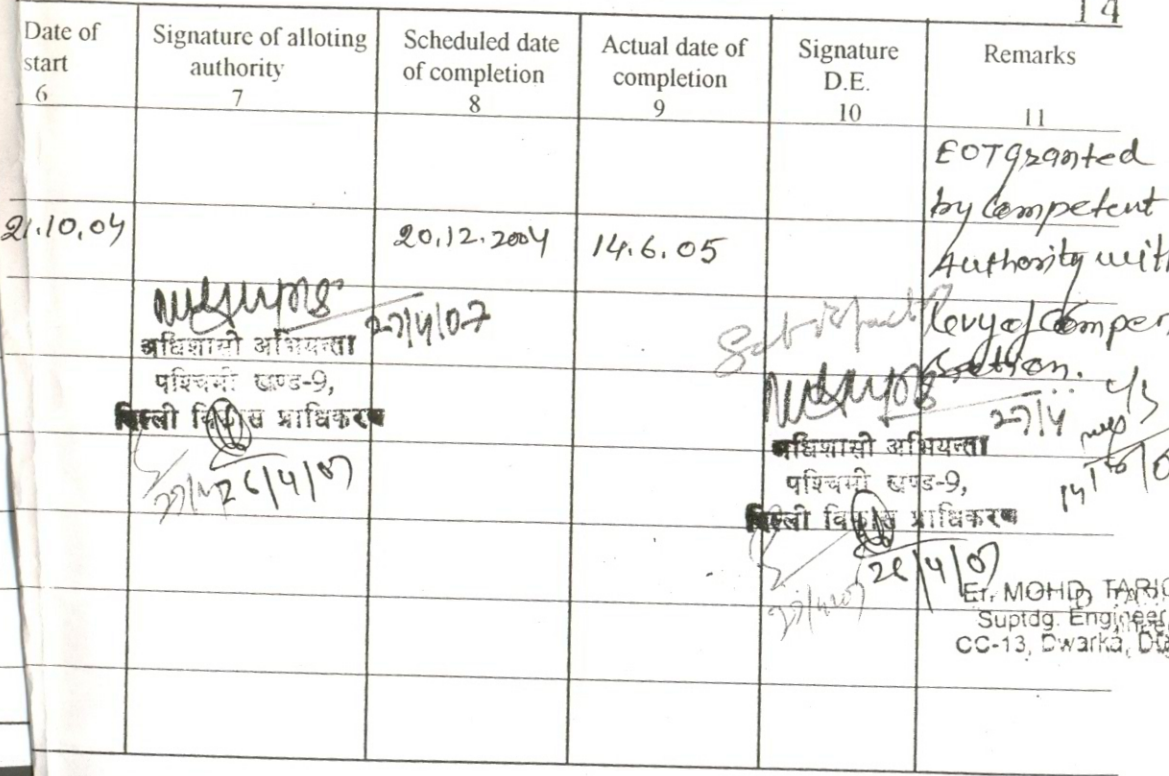 14
Date of start
6
Signature of alloting authority
7
Scheduled date of completion
8
Actual date of completion
9
Signature D.E.
10
Remarks
11
21.10.04
20.12.2004
14.6.05
EOT granted
by Competent
Authority with
levy of Compen
sation.
27/4/07
अधिशासी अभियन्ता
पश्चिमी खण्ड-9,
दिल्ली विकास प्राधिकरण
26/4/07
27/4
अधिशासी अभियन्ता
पश्चिमी खण्ड-9,
दिल्ली विकास प्राधिकरण
26/4/07
Er. MOHD. TARIQ
Suptdg. Engineer
CC-13, Dwarka,